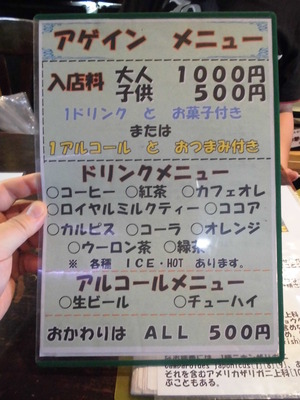 アゲイン メニュー
入店料 大人 1000円
子供 500円
1ドリンク と お菓子付き
または
1アルコール と おつまみ付き
ドリンクメニュー
○コーヒー ○紅茶 ○カフェオレ
○ロイヤルミルクティー ○ココア
○カルピス ○コーラ ○オレンジ
○ウーロン茶 ○緑茶
※ 各種 ICE・HOT あります。
アルコールメニュー
○生ビール ○チューハイ
おかわりは ALL 500円
それを含むアメリカザリガニ上科
ぶこともある。